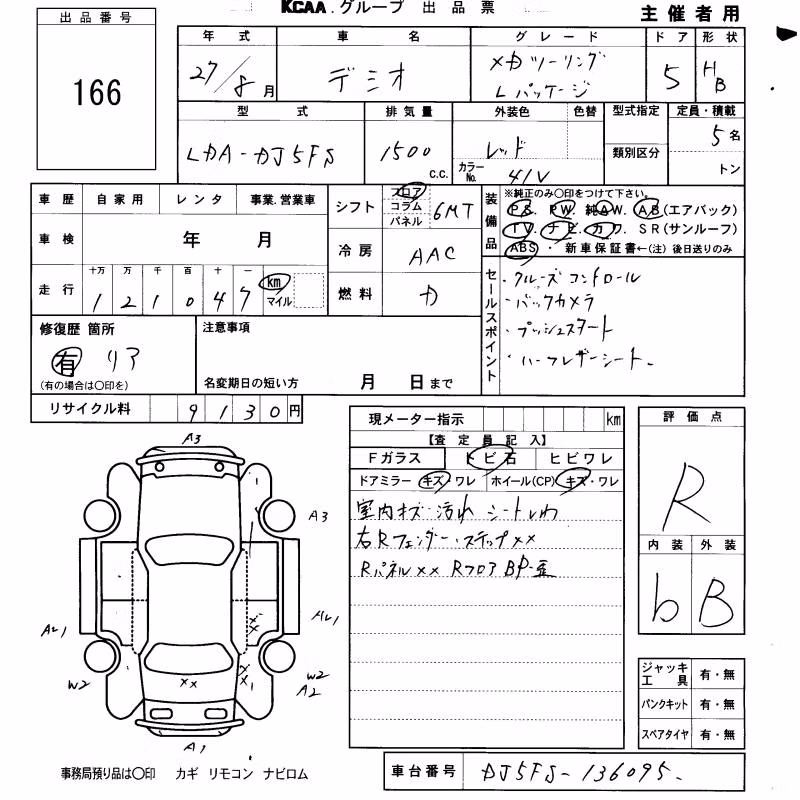 KCAA.グループ 出品票
主催者用
出品番号
166
年式 車名 グレード ドア 形状
27/8月 デミオ メカツーリング Lパッケージ 5 HB
型式 排気量 外装色 色替 型式指定 定員・積載
LDA-DJ5FS 1500 c.c. レッド
カラーNo. 41V
類別区分
5名
トン
車歴 自家用 レンタ 事業.営業車
シフト フロア コラム パネル 6MT
車検 年 月
冷房 AAC
走行 十万 万 千 百 十 一
1 2 1 0 4 7 km マイル
燃料 D
装備品
※純正のみ○印をつけて下さい。
PS. PW. 純AW. AB(エアバック)
TV. ナビ. カワ. SR(サンルーフ)
ABS・新車保証書←(注)後日送りのみ
セールスポイント
・クルーズコントロール
・バックカメラ
・プッシュスタート
・ハーフレザーシート.
修復歴 箇所
有 リア
(有の場合は○印を)
注意事項
名変期日の短い方 月 日まで
リサイクル料 9130円
現メーター指示 km
【査定員記入】
Fガラス トビ石 ヒビワレ
ドアミラー キズ・ワレ ホイール(CP) キズ・ワレ
室内キズ・汚れ シートしわ
右Rフェンダー・ステップ××
Rパネル×× Rフロア BP-歪
評価点
R
内装 外装
b B
ジャッキ 工具 有・無
パンクキット 有・無
スペアタイヤ 有・無
A3
A3
AU1
AU1
W2
W2
A2
××
A1
事務局預り品は○印 カギ リモコン ナビロム
車台番号 DJ5FS-136095.